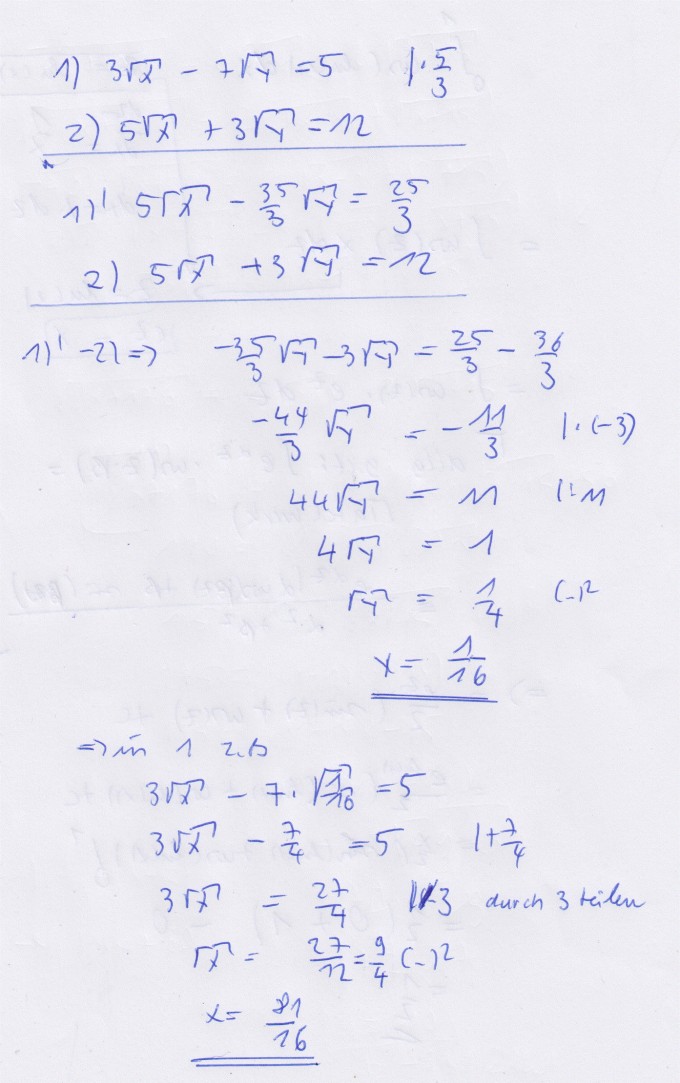 1) 3√x - 7√y = 5 |·5/3
2) 5√x + 3√y = 12
1)' 5√x - 35/3 √y = 25/3
2) 5√x + 3√y = 12
1)' - 2) => -35/3 √y - 3√y = 25/3 - 36/3
-44/3 √y = -11/3 |·(-3)
44√y = 11 |:11
4√y = 1
√y = 1/4 (-)²
x = 1/16
=> in 1 z.B
3√x - 7·√1/16 = 5
3√x - 7/4 = 5 |+7/4
3√x = 27/4 |-3 durch 3 teilen
√x = 27/12 = 9/4 (-)²
x = 81/16